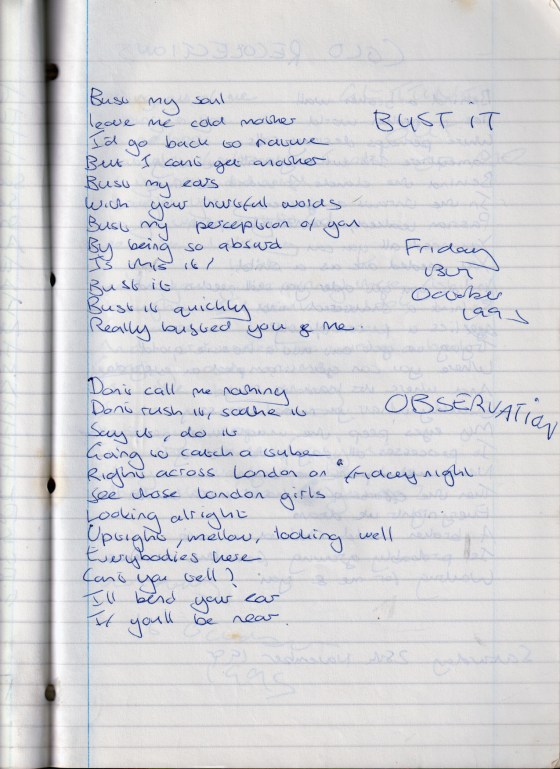 BUST IT
Bust my soul
leave me cold mother
I'd go back to nature
But I can't get another
Bust my ears
With your hurtful words
Bust my perception of you
By being so absurd
Is this it!
Bust it
Bust it quickly
Really busted you & me.
Friday
October
199
OBSERVATION
Don't call me nothing
Don't rush it, soothe it
Say it, do it
Going to catch a tube
Right across London on a friday night
See those London girls
Looking alright
Upright, mellow, looking well
Everybodies here
Can't you tell?
I'll bend your ear
If you'll be near.